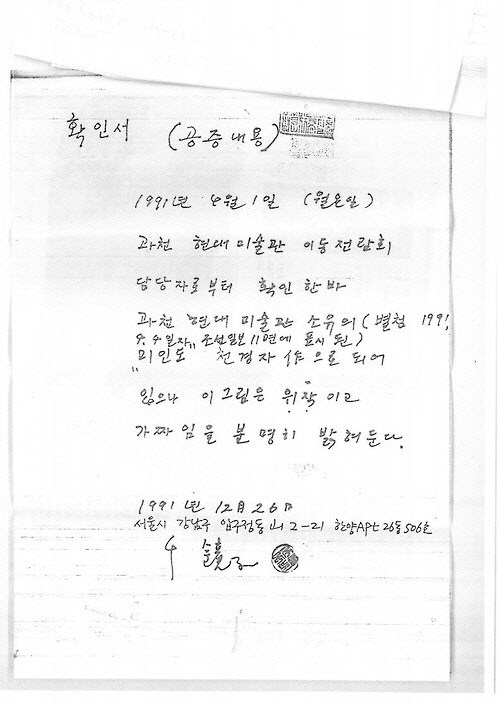 확인서 (공증내용)
1991년 4월 1일 (월요일)
과천 현대미술관 이동전람회
담당자로부터 확인한바
과천 현대미술관 소유의 (별첨 1991,
4.4일자 조선일보 11면에 표시된)
"미인도" 천경자 作으로 되어
있으나 이그림은 위작이고
가짜임을 분명히 밝혀둔다.
1991년 12月 26日
서울시 강남구 압구정동 山 2-21 한양APt 26동 506호
鏡子